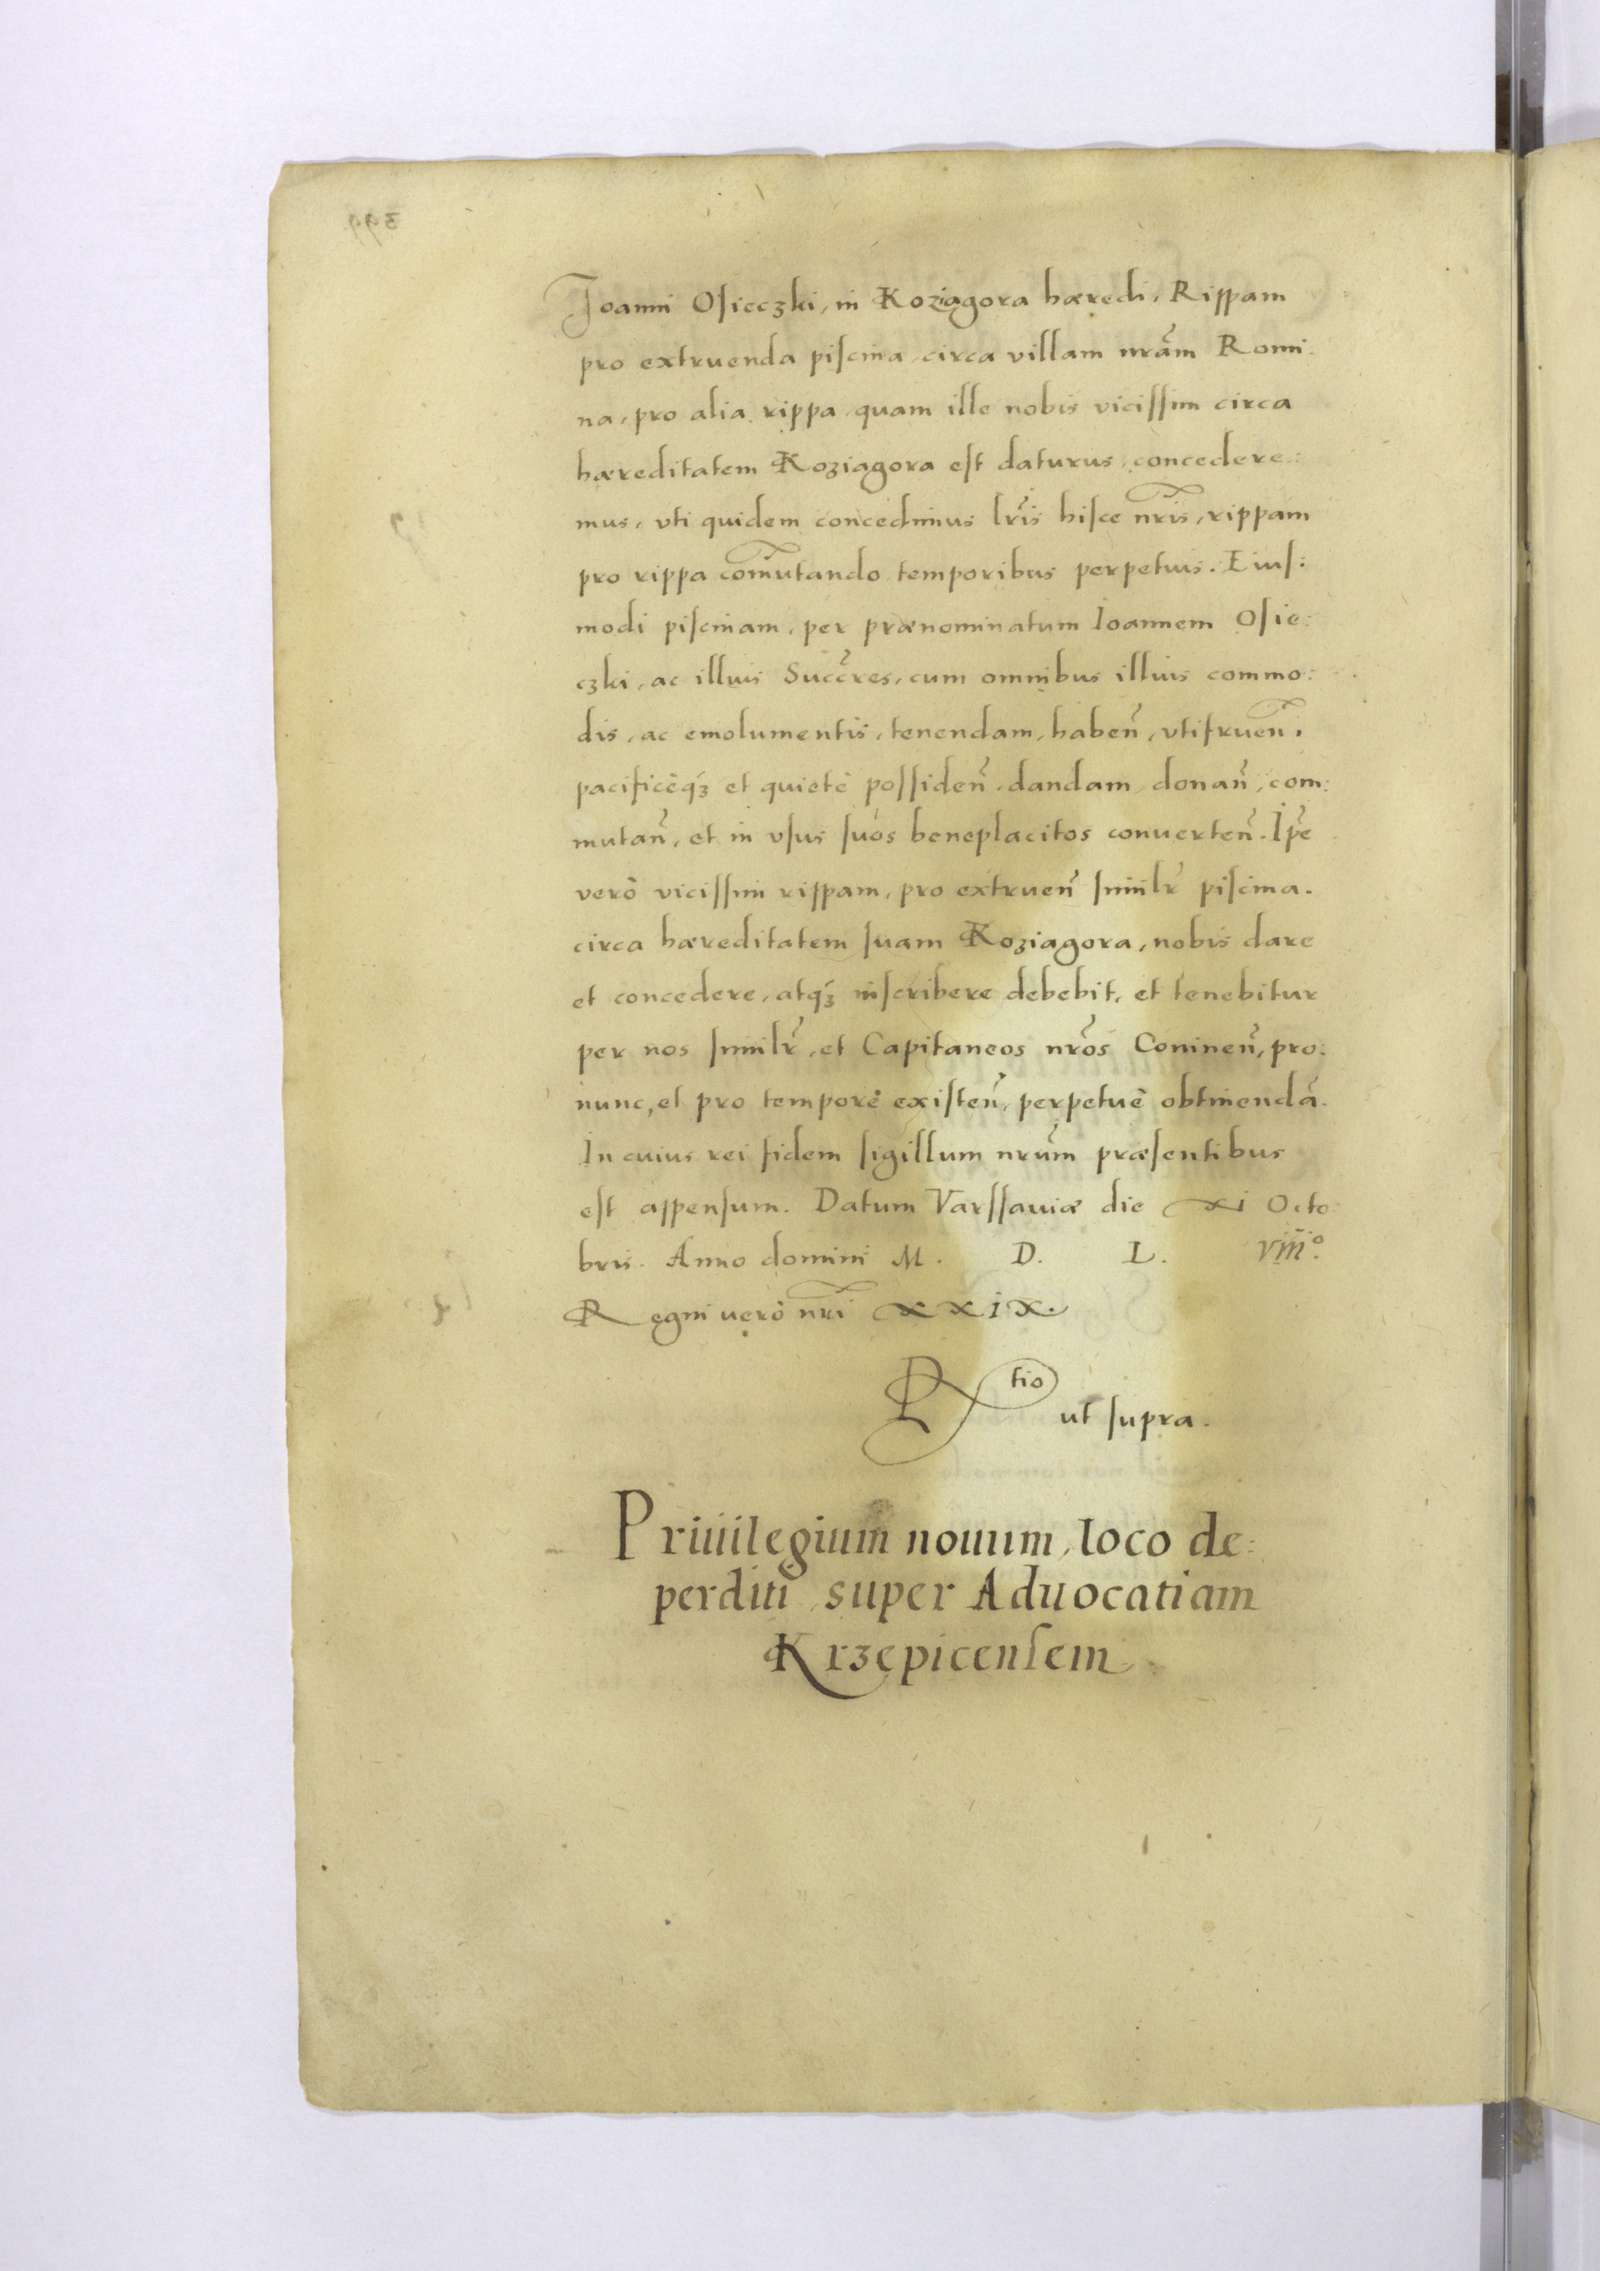 Joanni Osieczki, in Koziagora hæredi, Rippam
pro extruenda piscina, circa villam nram̃ Romi:
na, pro alia rippa, quam ille nobis vicissim circa
hæreditatem Koziagora est daturus, concedere:
mus, vti quidem concedimus lr̃is hisce nr̃is, rippam
pro rippa com̃utando temporibus perpetuis. Eius:
modi piscinam, per prænominatum Ioannem Osie:
czki, ac illius Succ̃res, cum omnibus illius commo:
dis, ac emolumentis, tenendam, haben̄, vtifruen̄,
pacificèq́ꝫ et quietè possiden̄, dandam, donan̄, com:
mutan̄, et in vsus suos beneplacitos conuerten̄. Ip̃e
verò vicissim rippam, pro extruen̄ similr̃ piscina.
circa hæreditatem suam Koziagora, nobis dare
et concedere, atq́ꝫ inscribere debebit, et tenebitur
per nos similr̃, et Capitaneos nrõs Coninen̄, pro:
nunc, et pro tempore existen̄, perpetuè obtinendã.
In cuius rei fidem sigillum nrũm præsentibus
est appensum. Datum Varssauiæ die XI Octo:
bris. Anno domini M. D. L. VIII°.
Regni verò nr̃i XXIX.
Rtio
ut supra.
Priuilegium nouum, loco de:
perditi, super Aduocatiam
Krzepicensem